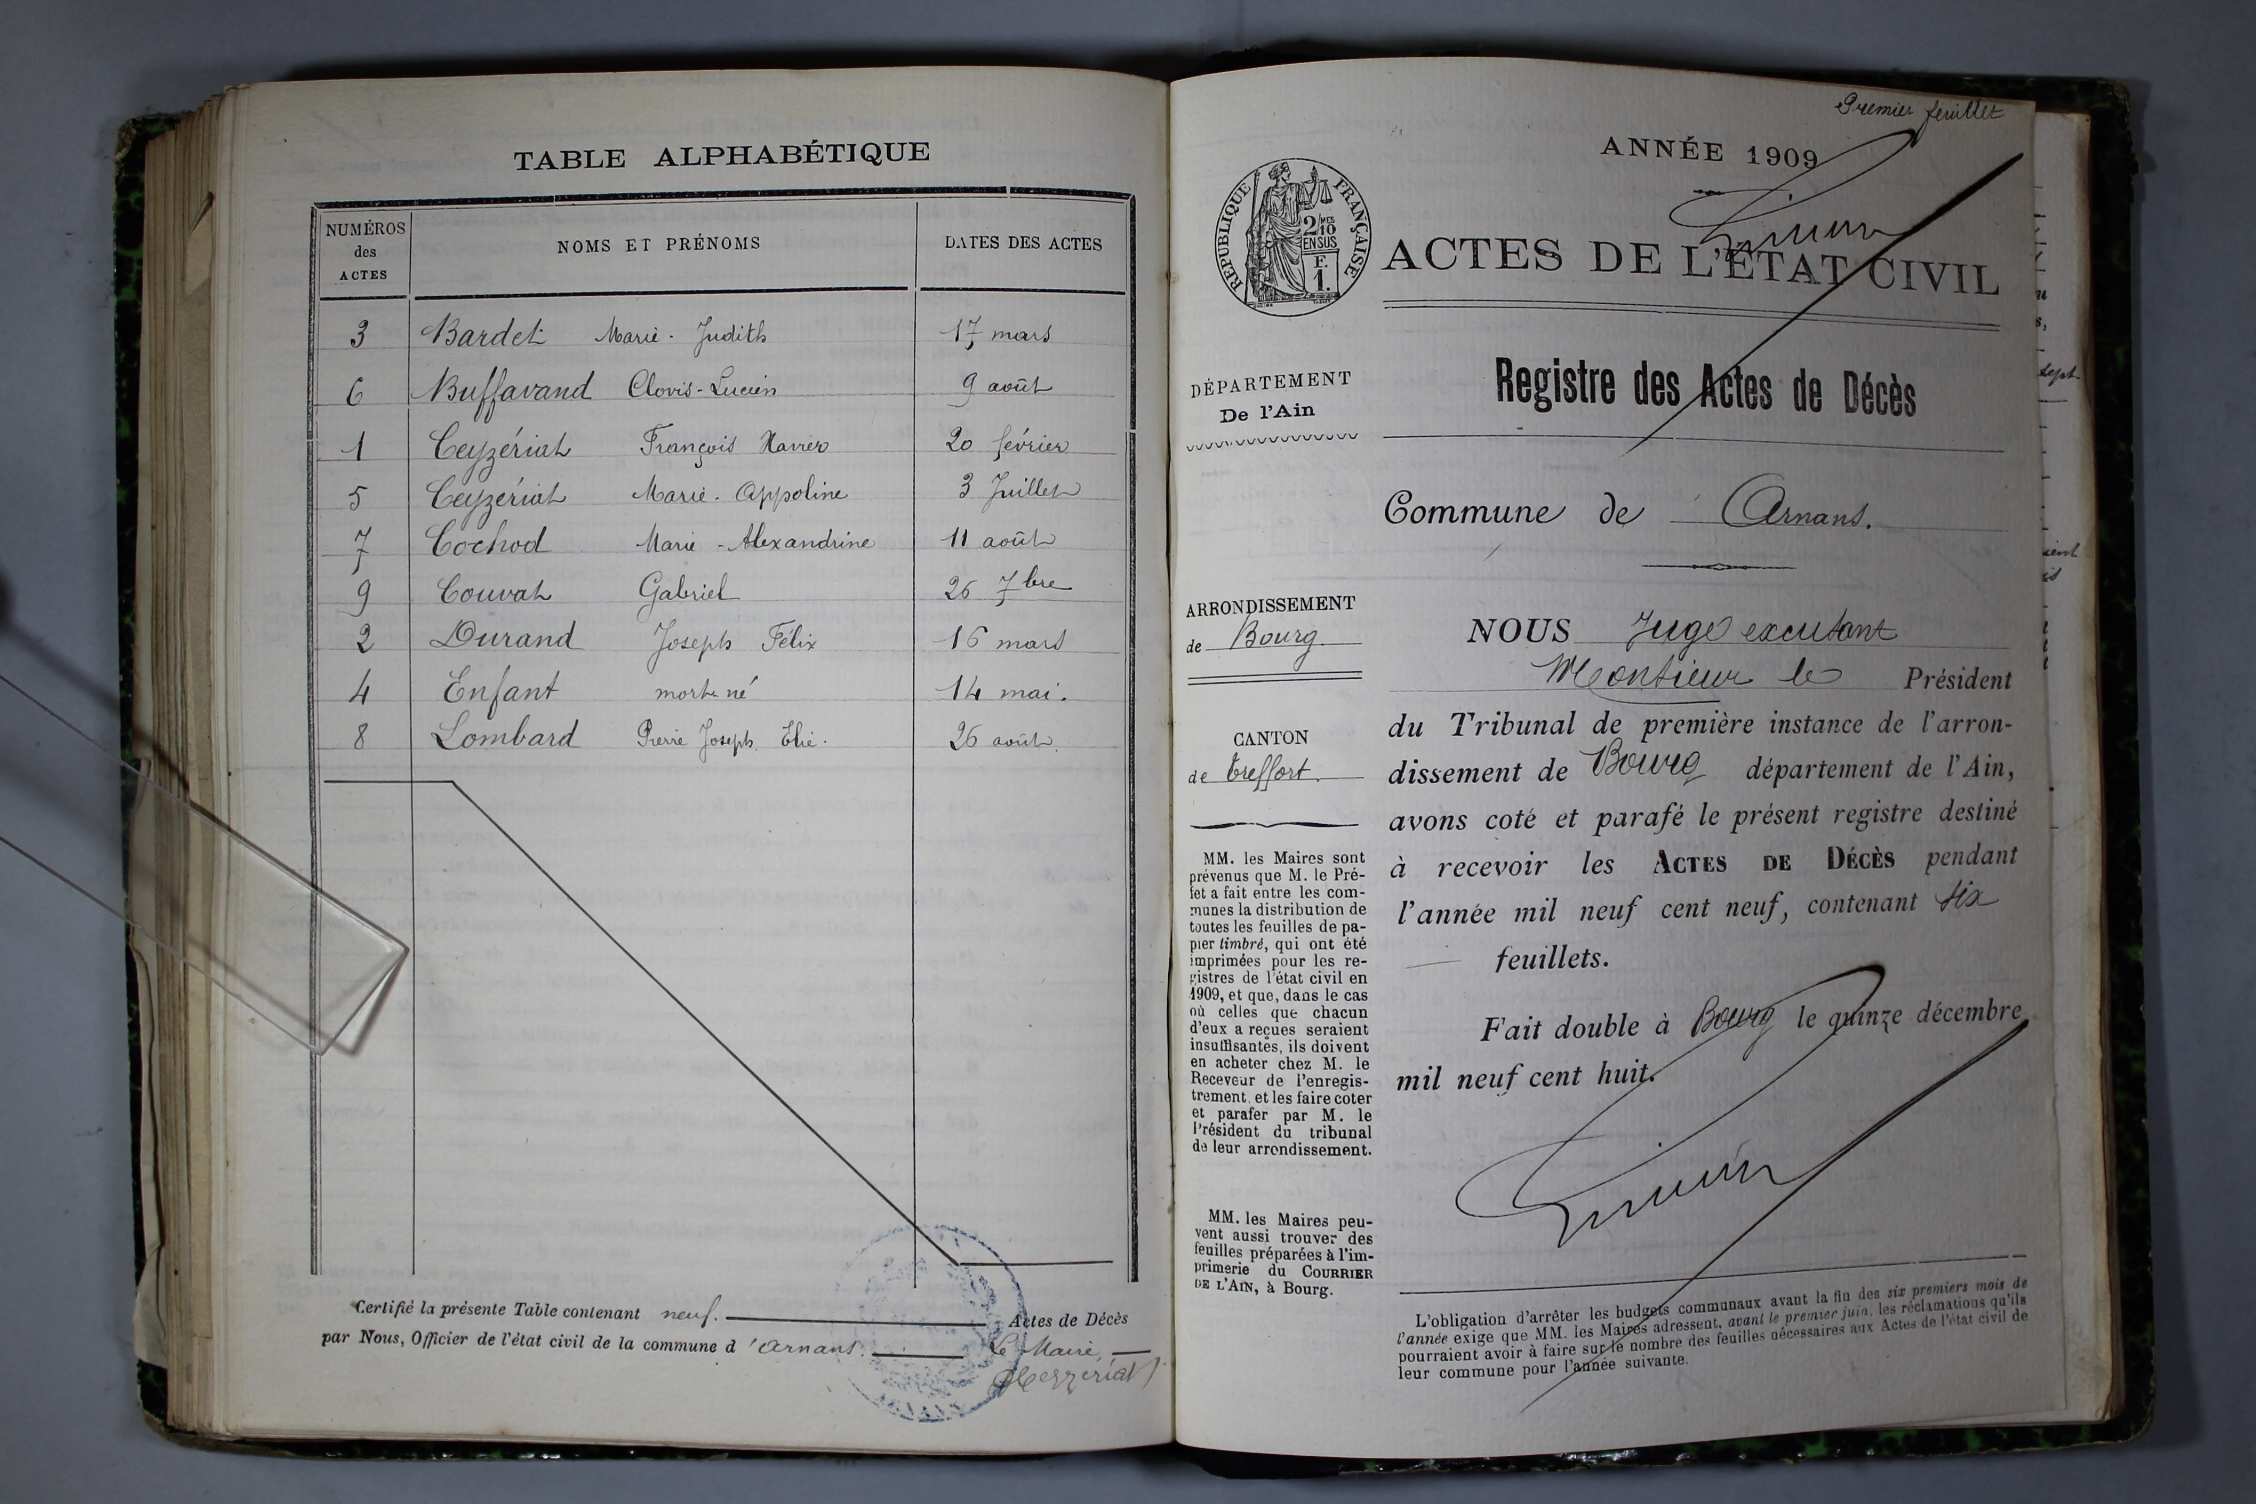 TABLE ALPHABÉTIQUE
NUMÉROS des ACTES NOMS ET PRÉNOMS DATES DES ACTES
3 Bardet Marie-Judith 17 mars
6 Buffavand Clovis-Lucien 9 août
1 Ceyzériat François Xavier 20 février
5 Ceyzériat Marie-Appoline 3 Juillet
7 Cochod Marie-Alexandrine 11 août
9 Couvat Gabriel 26 7bre
2 Durand Joseph Félix 16 mars
4 Enfant mort-né 14 mai.
8 Lombard Pierre Joseph Elie. 26 août.
Certifié la présente Table contenant neuf. Actes de Décès
par Nous, Officier de l'état civil de la commune d'Arnans. Le Maire,
Ceyzériat
Premier feuillet
ANNÉE 1909
RÉPUBLIQUE FRANÇAISE
2/10 MES
EN SUS
F.
1.
ACTES DE L'ÉTAT CIVIL
Registre des Actes de Décès
DÉPARTEMENT
De l'Ain
Commune de Arnans.
ARRONDISSEMENT
de Bourg.
CANTON
de Treffort.
MM. les Maires sont
prévenus que M. le Pré-
fet a fait entre les com-
munes la distribution de
toutes les feuilles de pa-
pier timbré, qui ont été
imprimées pour les re-
gistres de l'état civil en
1909, et que, dans le cas
où celles que chacun
d'eux a reçues seraient
insuffisantes, ils doivent
en acheter chez M. le
Receveur de l'enregis-
trement, et les faire coter
et parafer par M. le
Président du tribunal
de leur arrondissement.
MM. les Maires peu-
vent aussi trouver des
feuilles préparées à l'im-
primerie du COURRIER
DE L'AIN, à Bourg.
NOUS Juge excusant
Monsieur le Président
du Tribunal de première instance de l'arron-
dissement de Bourg département de l'Ain,
avons coté et parafé le présent registre destiné
à recevoir les ACTES DE DÉCÈS pendant
l'année mil neuf cent neuf, contenant six
feuillets.
Fait double à Bourg le quinze décembre
mil neuf cent huit.
L'obligation d'arrêter les budgets communaux avant la fin des six premiers mois de
l'année exige que MM. les Maires adressent, avant le premier juin, les réclamations qu'ils
pourraient avoir à faire sur le nombre des feuilles nécessaires aux Actes de l'état civil de
leur commune pour l'année suivante.